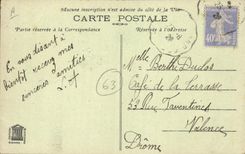 Aucune inscription n'est admise du côté de la Vue
CARTE POSTALE
Partie réservée à la Correspondance
Réservée à l'Adresse
En vous disant à
bientôt recevez mes
sincères amitiés
63
Melle Berthe Duclos
Café de la Terrasse
33 Rue Faventines
Valence
Drôme
40